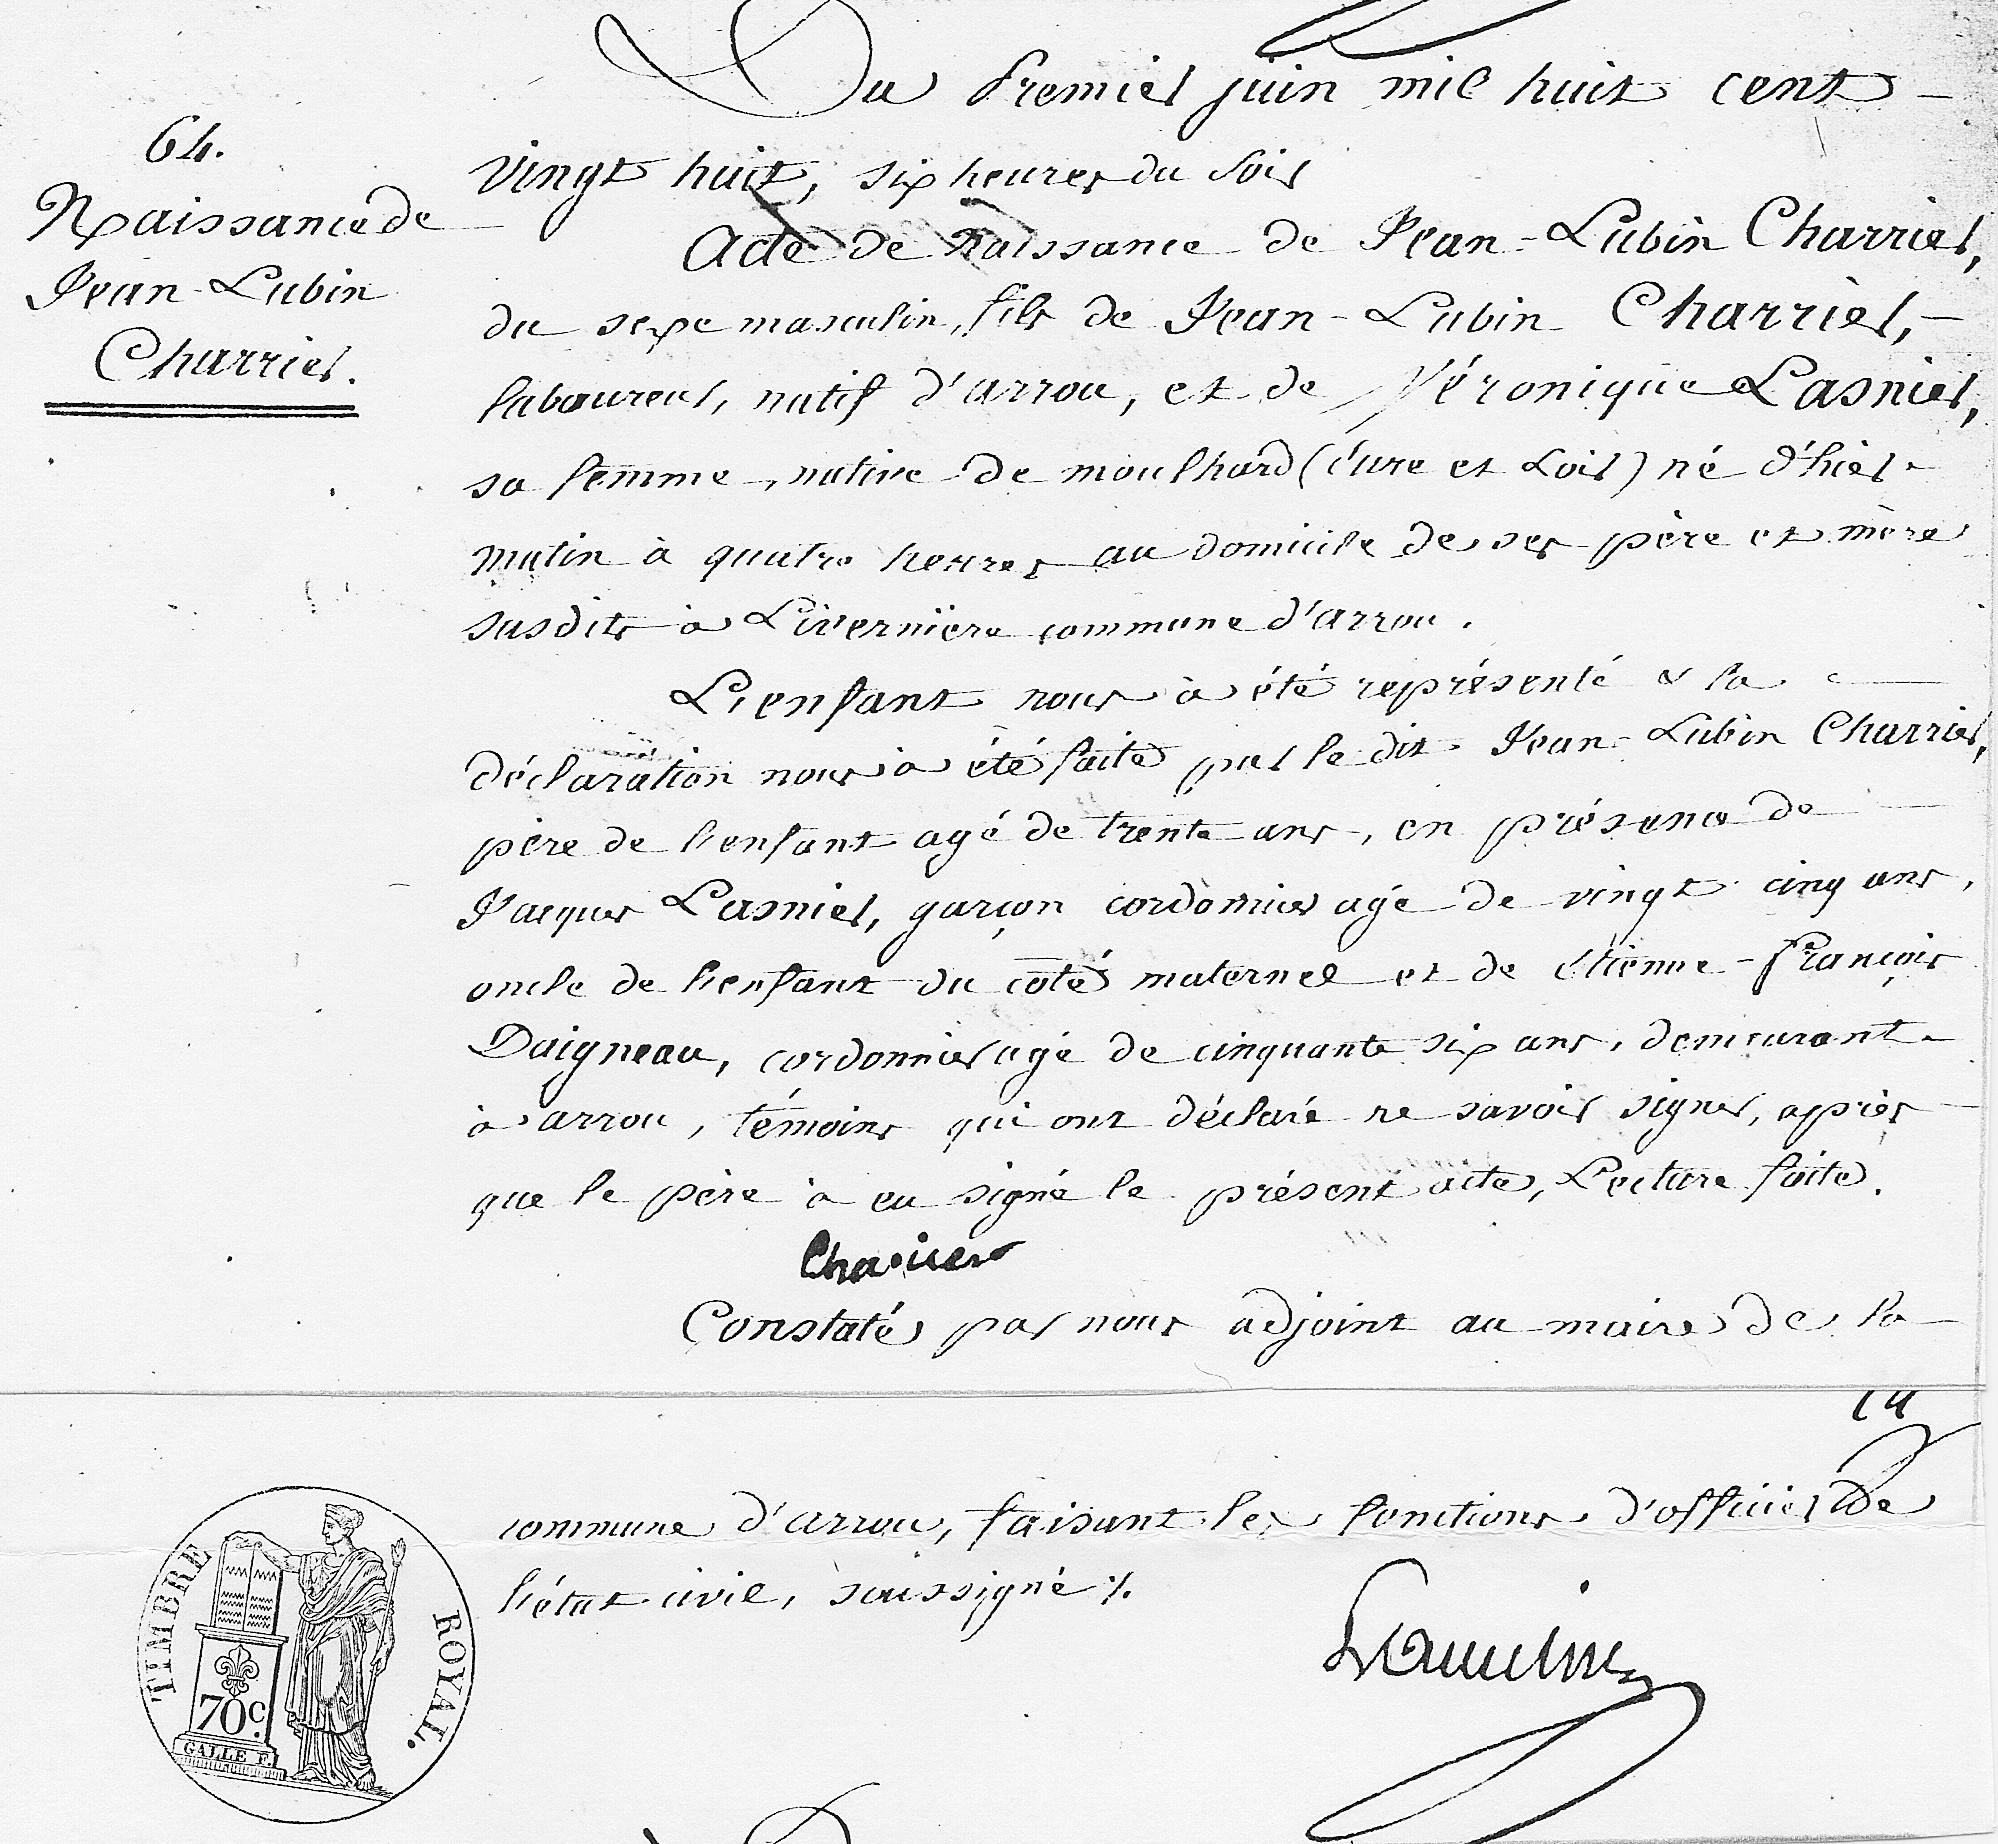 64.
Naissance de
Jean-Lubin
Charrier.
Du Premier juin mil huit cent
vingt huit, six heures du soir
Acte de naissance de Jean-Lubin Charrier,
du sexe masculin, fils de Jean-Lubin Charrier,
laboureur, natif d'arrou, et de Véronique Lasnier,
sa femme, native de moulhard (éure et Loir) né d'hier
matin à quatre heures au domicile de ses père et mère
susdits à Livernière commune d'arrou.
L'enfant nous à été représenté & la
déclaration nous à été faite par le dit Jean-Lubin Charrier,
père de l'enfant agé de trente ans, en présence de
Jacques Lasnier, garçon cordonnier agé de vingt cinq ans,
oncle de l'enfant du côté maternel et de étienne-François
Daigneau, cordonnier agé de cinquante six ans, demeurant
à arrou, témoins qui ont déclaré ne savoir signer, après
que le père à eu signé le présent acte, Lecture faite.
Charier
Constaté par nous adjoint au maire de la
commune d'arrou, faisant les fonctions d'officier de
l'état civil, soussigné ./.
TIMBRE ROYAL.
70c.
GALLE F.